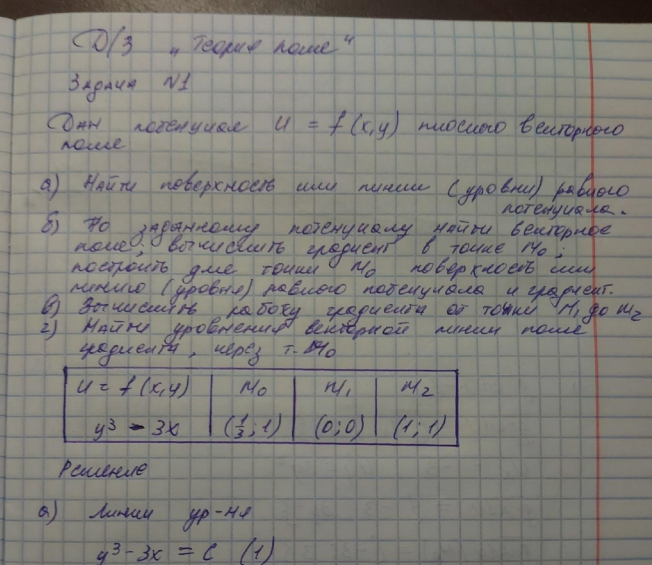 Д/З „Теория поля"
Задача №1
Дан потенциал U = f(x,y) плоского векторного
поля
а) Найти поверхность или линии (уровни) равного
потенциала.
б) По заданному потенциалу найти векторное
поле, вычислить градиент в точке М₀;
построить для точки М₀ поверхность или
линию (уровня) равного потенциала и градиент.
в) Вычислить работу градиента от точки М₁ до М₂
г) Найти уровнения векторной линии поля
градиента, через т. М₀
U = f(x,y) М₀ М₁ М₂
y³ - 3x (1/3; 1) (0;0) (1;1)
Решение
а) Линии ур-ня
y³ - 3x = C (1)